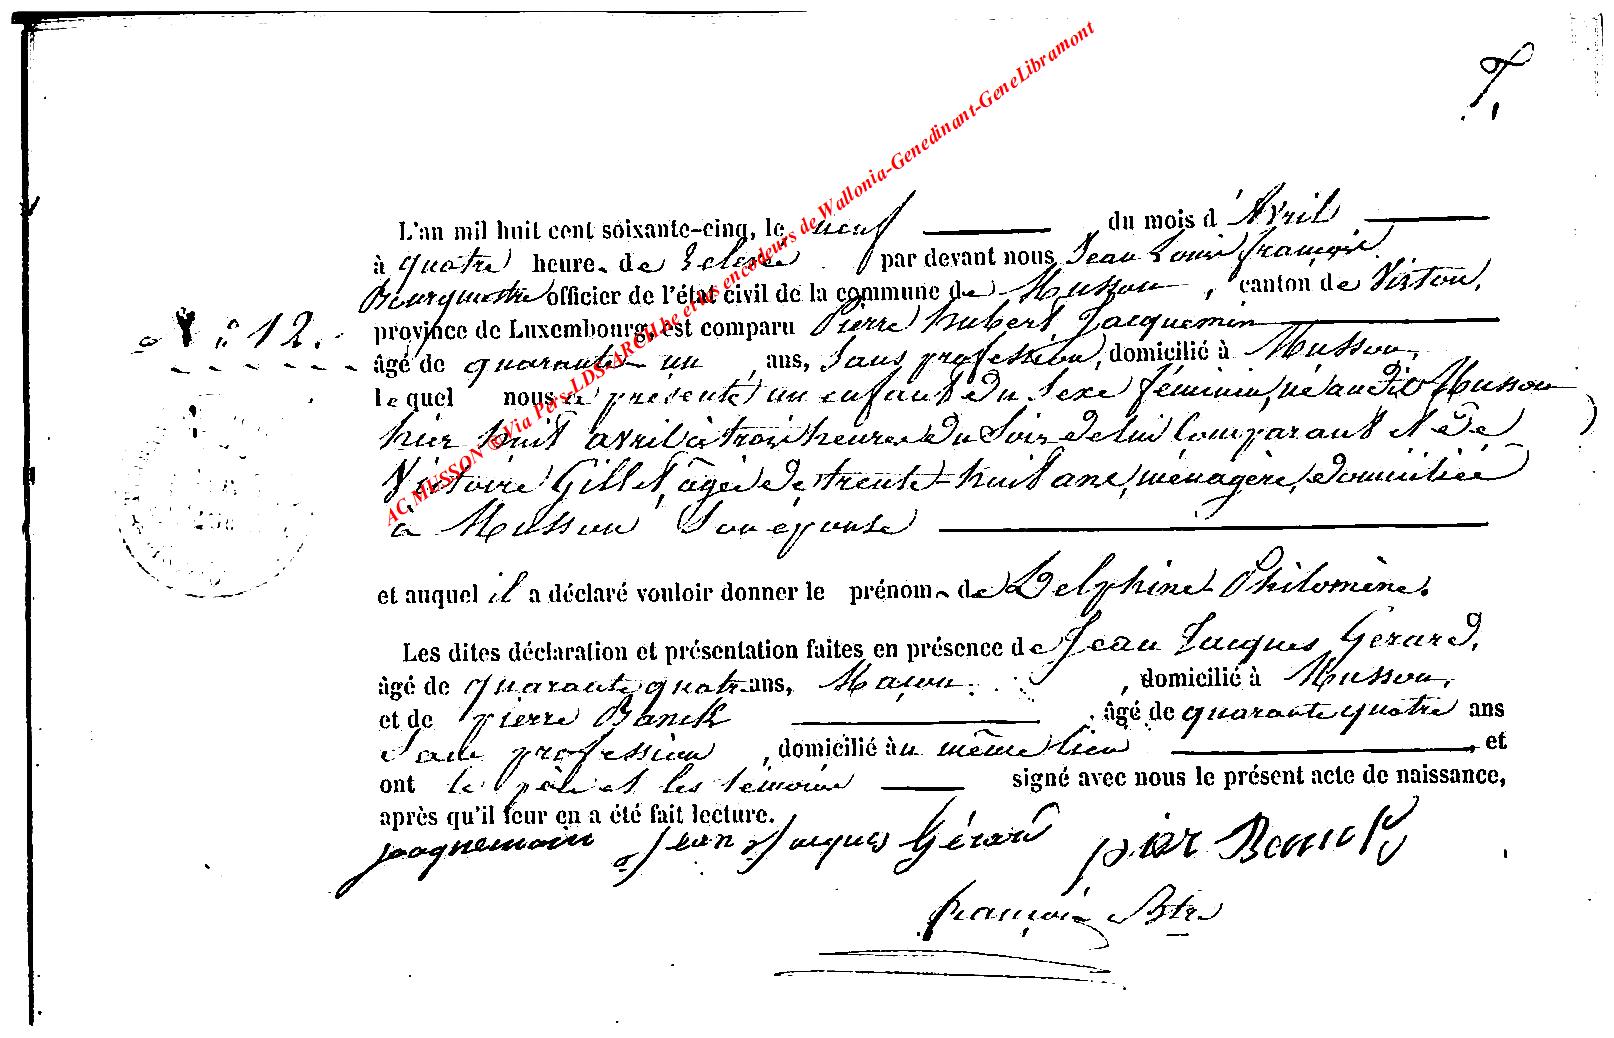 7.
L'an mil huit cent soixante-cinq, le neuf du mois d'Avril
à quatre heure de relevée par devant nous Jean Louis françois
Bourgmestre officier de l'état civil de la commune de Musson, canton de Virton,
N° 12.
province de Luxembourg, est comparu Pierre hubert Jacquemin
âgé de quarante un ans, Sans profession, domicilié à Musson,
lequel nous a présenté un enfant du Sexe féminin, né au dit Musson
hier huit avril à trois heures du Soir de lui Comparant et de
Victoire Gillet, âgée de trente-huit ans, ménagère, domiciliée
à Musson Son épouse
et auquel il a déclaré vouloir donner le prénom de Delphine Philomène.
Les dites déclaration et présentation faites en présence de Jean Jacques Gérard,
âgé de quarante quatre ans, Maçon, domicilié à Musson,
et de pierre Banck, âgé de quarante quatre ans
Sans profession, domicilié au même lieu, et
ont le père et les témoins signé avec nous le présent acte de naissance,
après qu'il leur en a été fait lecture.
jacquemin Jean Jacques Gérard
françois Btre
AC MUSSON © Via Pers-LDS-ARCH.be et les encodeurs de Wallonia-Genedinant-GeneLibramont